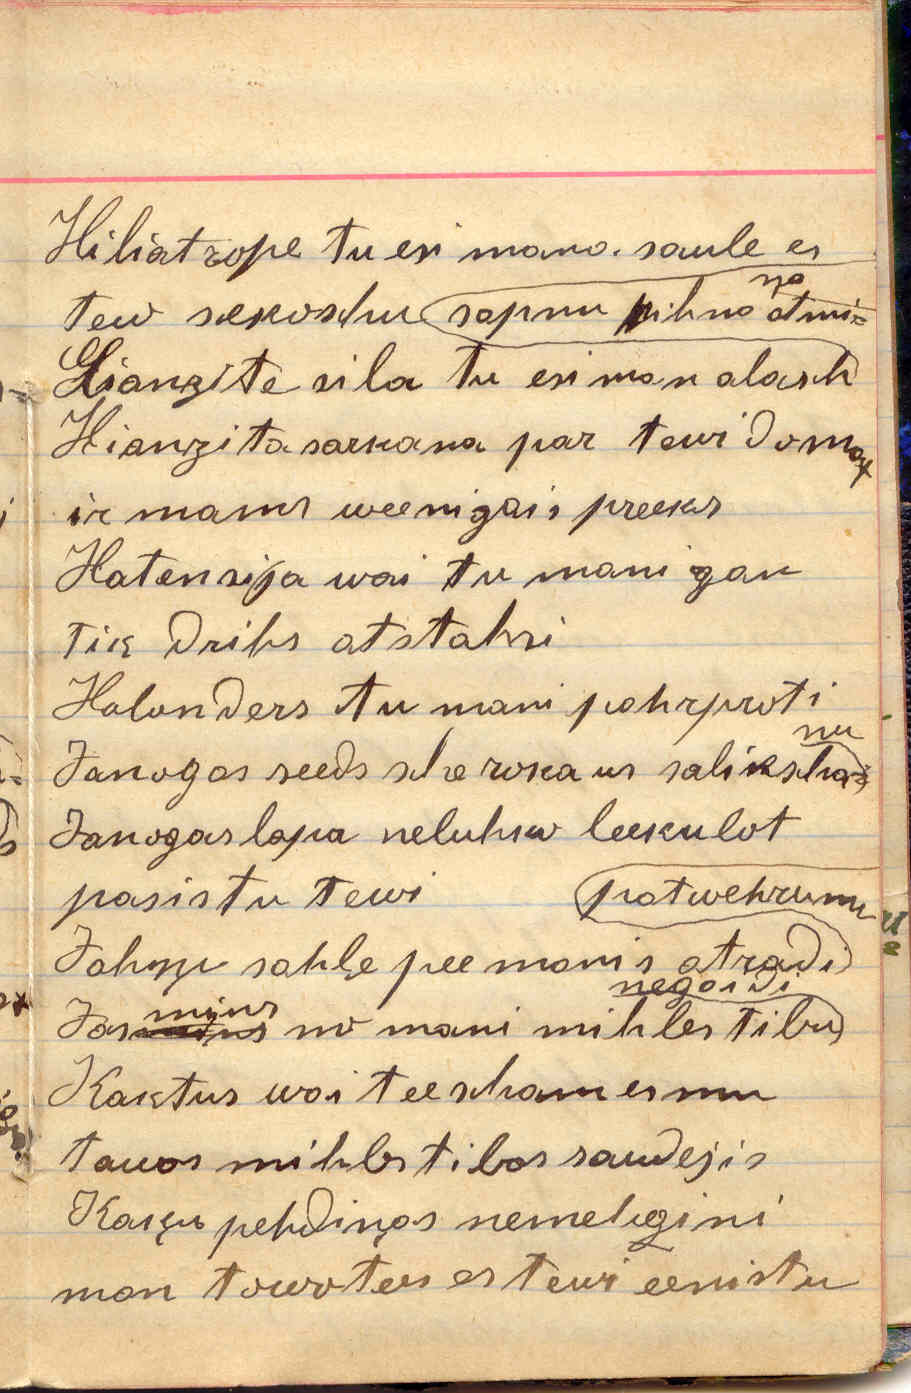 Hiliatrope tu esi mana. saule es
tew sekoschu sapnu pihna no atmi=
Hianzite sila tu esi man alasch
Hianzita sarkana par tewi domat
ir mans weenigais preeks
Hatensija wai tu mani gan
tik drihs atstahsi
Holanders tu mani pahrproti nu
Janogas seeds sche rokans salikschas
Janogas lapa neluhko leekulot
pasistu tewi patwehrumu
Jahņu sahļe pee manis atradi
Jasmins no mani mihlestibu negaidi
Kaktus wai teescham esmu
tawas mihlestibas saudejis
Kaķu pehdiņas nemehģini
man tuwotees es tewi eenistu